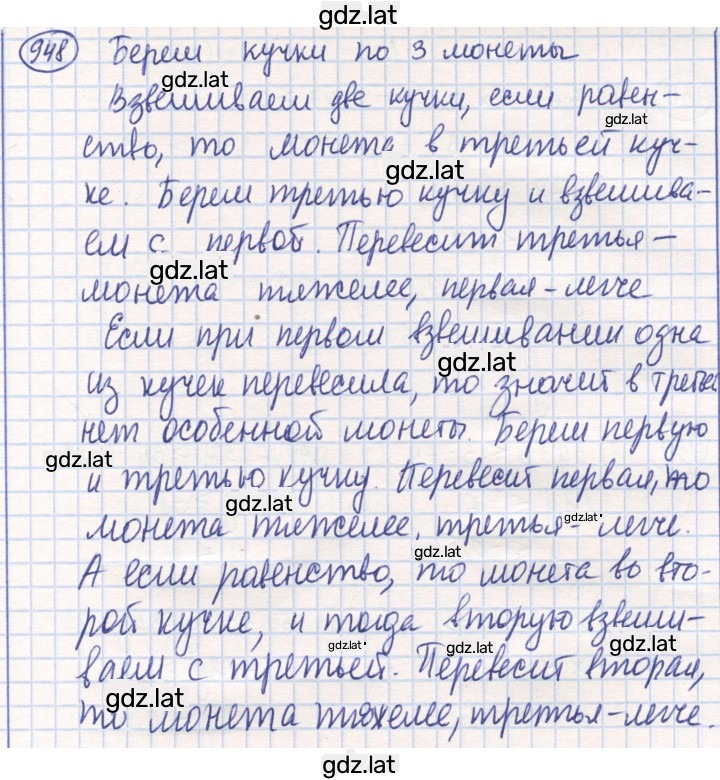 gdz.lat
948 Берем кучки по 3 монеты
gdz.lat
Взвешиваем две кучки, если равен-
gdz.lat
ство, то монета в третьей куч-
gdz.lat
ке. Берем третью кучку и взвешива-
ем с первой. Перевесит третья-
gdz.lat
монета тяжелее, первая-легче
Если при первом взвешивании одна
gdz.lat
из кучек перевесила, то значит в третьей
нет особенной монеты. Берем первую
gdz.lat
и третью кучку. Перевесит первая, то
gdz.lat
монета тяжелее, третья- легче.
gdz.lat
gdz.lat
А если равенство, то монета во вто-
рой кучке, и тогда вторую взвеши-
gdz.lat gdz.lat gdz.lat
ваем с третьей. Перевесит вторая,
gdz.lat
то монета тяжелее, третья-легче.
gdz.lat